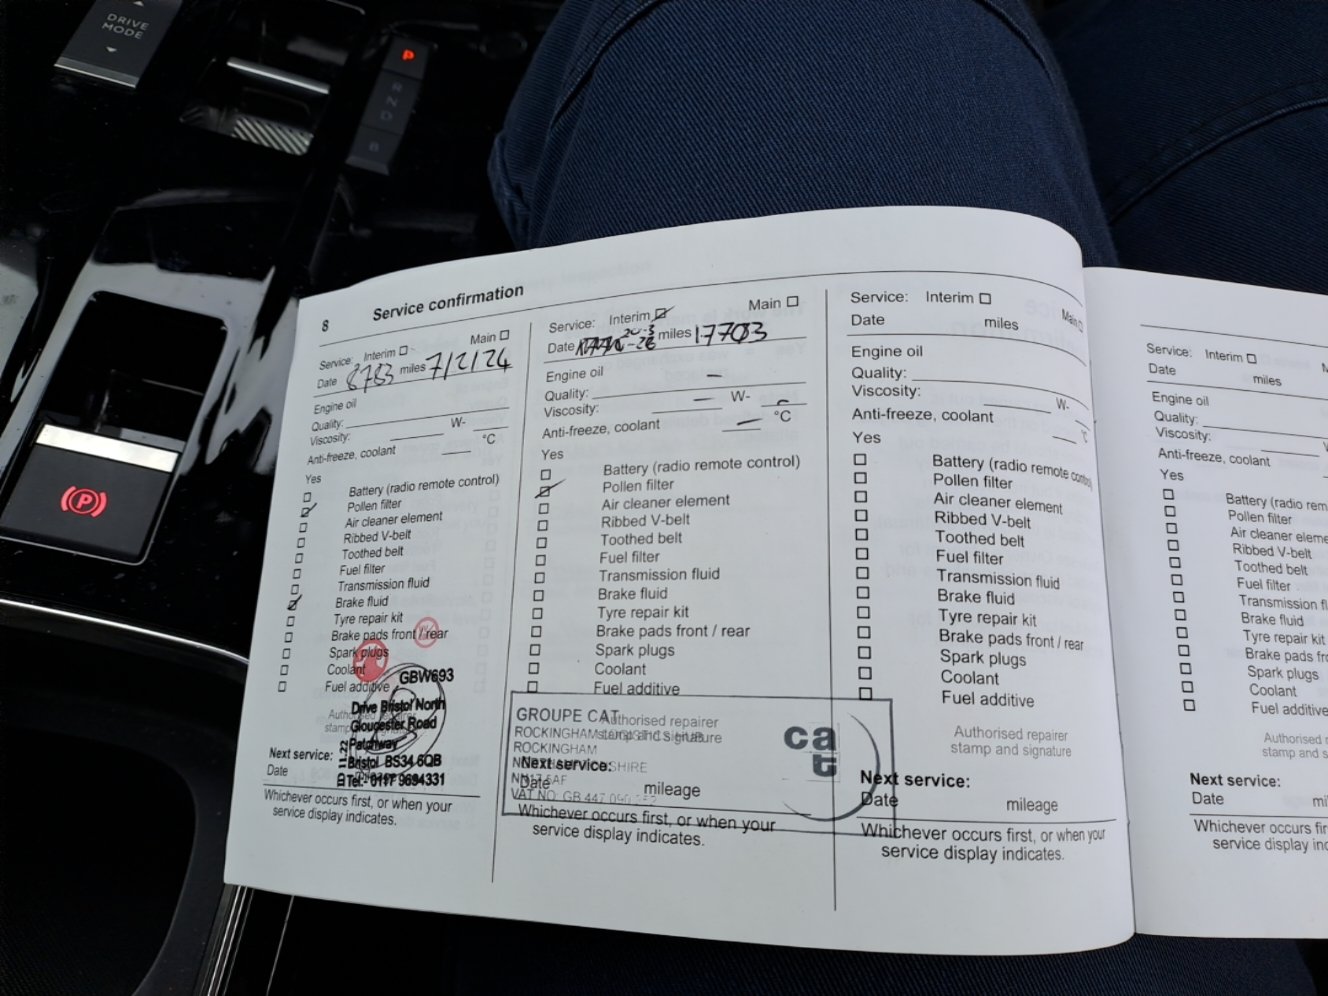 DRIVE
MODE
P
R
N
D
B
P
8 Service confirmation
Service: Interim Main
Date 8783 miles 7/2/24
Engine oil
Quality:
Viscosity: W-
Anti-freeze, coolant °C
Yes
Battery (radio remote control)
Pollen filter
Air cleaner element
Ribbed V-belt
Toothed belt
Fuel filter
Transmission fluid
Brake fluid
Tyre repair kit
Brake pads front / rear
Spark plugs
Coolant
Fuel additive
GBW693
Drive Bristol North
Gloucester Road
Patchway
Bristol BS34 6QB
Tel: 0117 9694331
Next service:
Date
Whichever occurs first, or when your
service display indicates.
Service: Interim Main
Date miles 17703
Engine oil
Quality:
Viscosity: W-
Anti-freeze, coolant °C
Yes
Battery (radio remote control)
Pollen filter
Air cleaner element
Ribbed V-belt
Toothed belt
Fuel filter
Transmission fluid
Brake fluid
Tyre repair kit
Brake pads front / rear
Spark plugs
Coolant
Fuel additive
GROUPE CAT
Authorised repairer
stamp and signature
ROCKINGHAM LOGISTICS HUB
ROCKINGHAM
NN17 5AF
VAT NO: GB 447 090
cat
Next service:
Date mileage
Whichever occurs first, or when your
service display indicates.
Service: Interim Main
Date miles
Engine oil
Quality:
Viscosity: W-
Anti-freeze, coolant °C
Yes
Battery (radio remote control)
Pollen filter
Air cleaner element
Ribbed V-belt
Toothed belt
Fuel filter
Transmission fluid
Brake fluid
Tyre repair kit
Brake pads front / rear
Spark plugs
Coolant
Fuel additive
Authorised repairer
stamp and signature
Next service:
Date mileage
Whichever occurs first, or when your
service display indicates.
Service: Interim
Date miles
Engine oil
Quality:
Viscosity:
Anti-freeze, coolant
Yes
Battery (radio rem
Pollen filter
Air cleaner eleme
Ribbed V-belt
Toothed belt
Fuel filter
Transmission fl
Brake fluid
Tyre repair kit
Brake pads fro
Spark plugs
Coolant
Fuel additive
Authorised r
stamp and s
Next service:
Date mi
Whichever occurs fir
service display indic